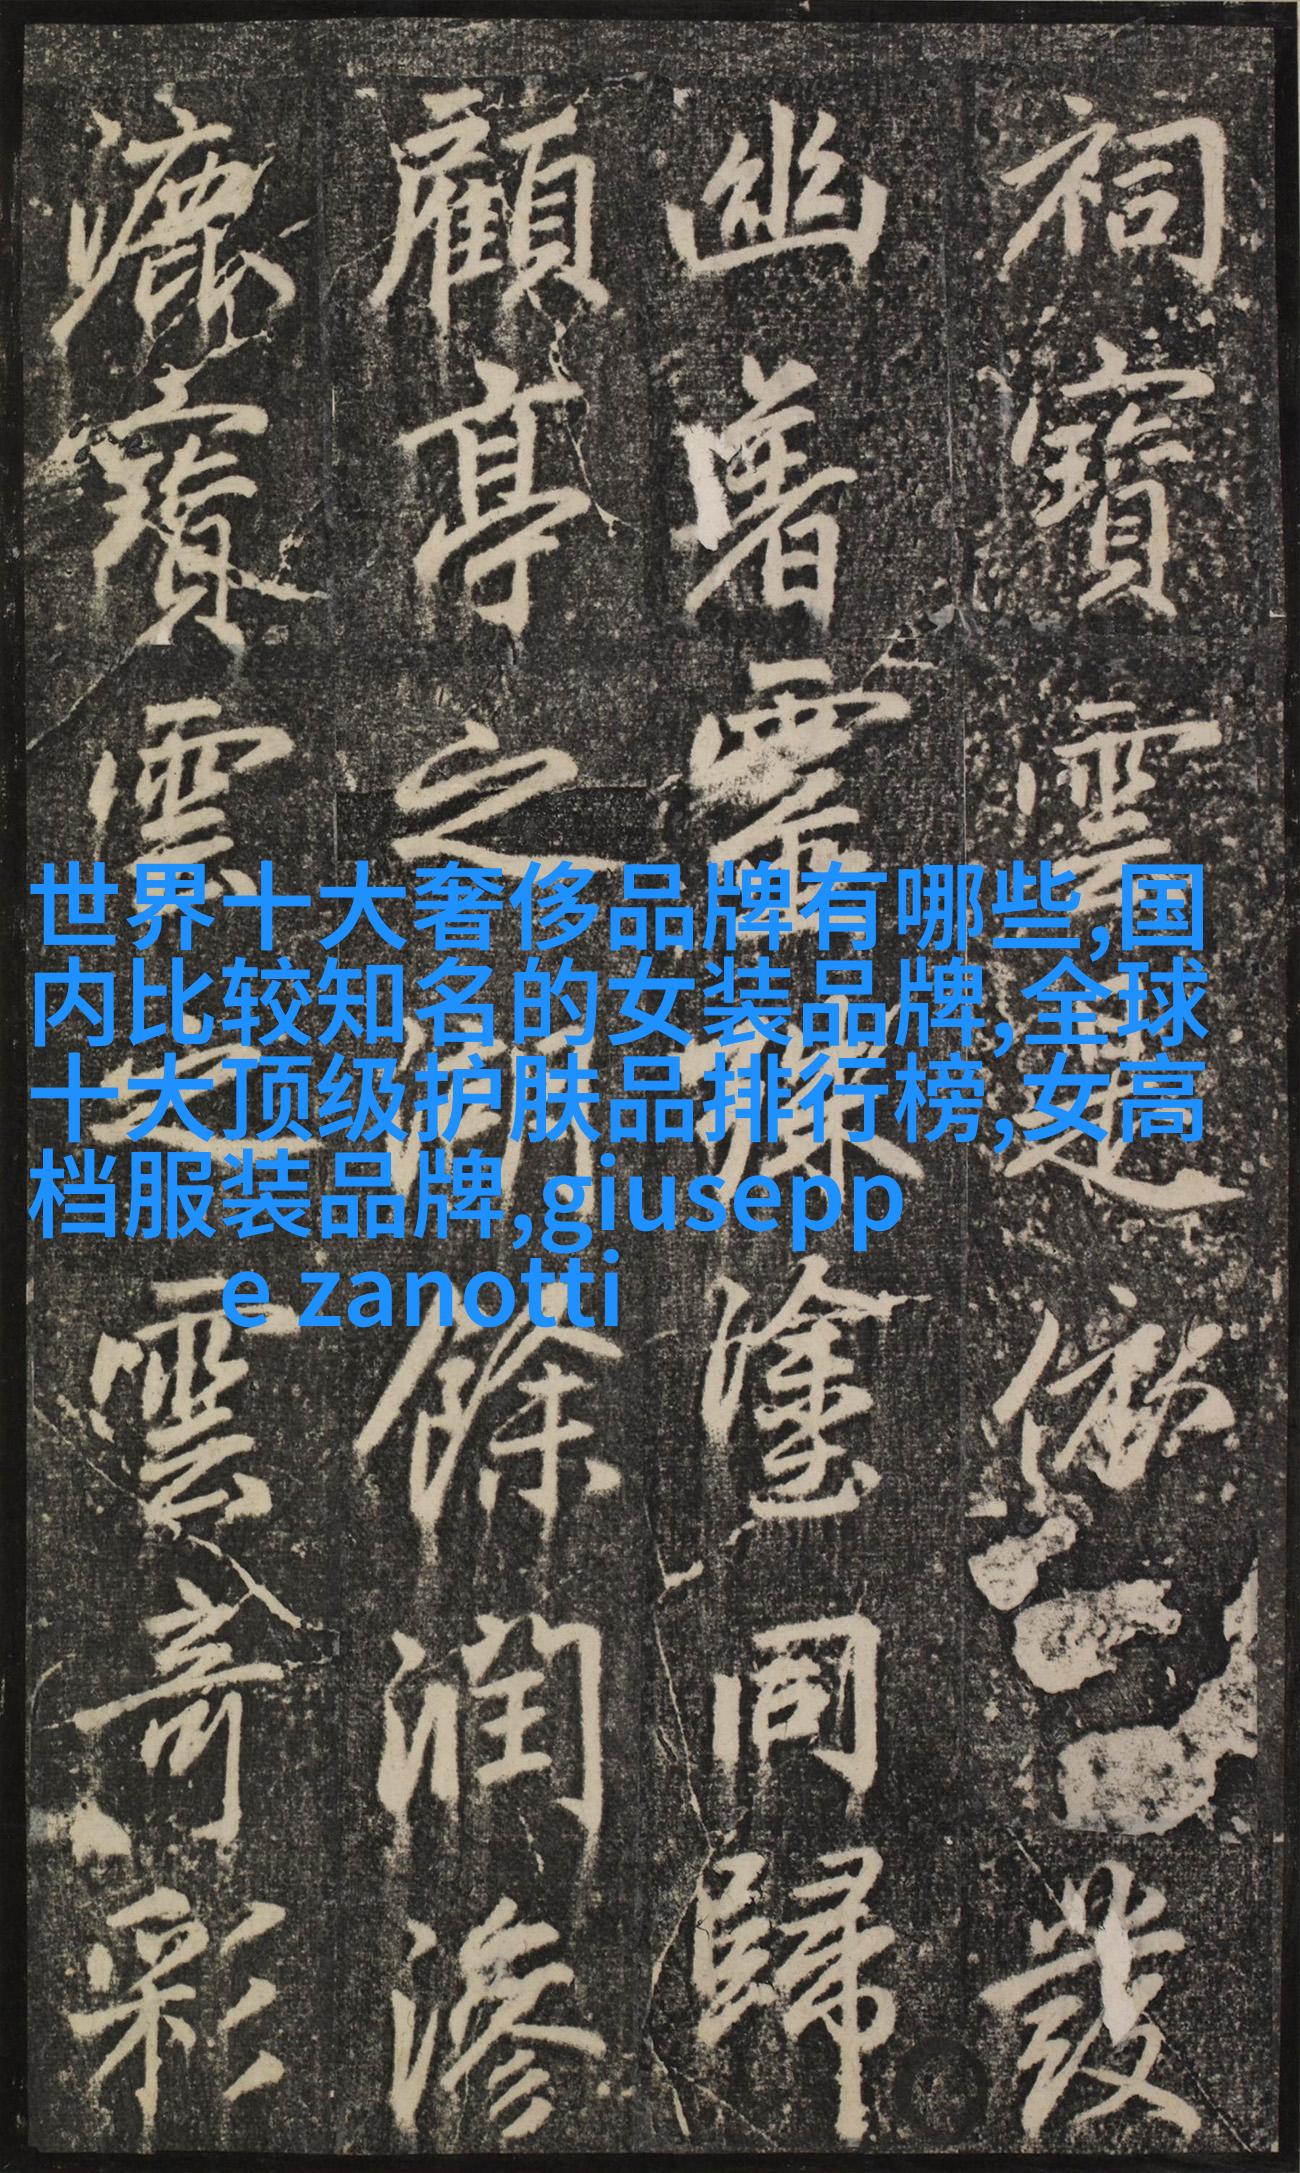 祠寶雲發
幽著靈殊塗同歸
顧亭之餘潤滲
漉寶雲之雲奇彩
世界十大奢侈品牌有哪些,国
内比较知名的女装品牌,全球
十大顶级护肤品排行榜,女高
档服装品牌,giusepp
e zanotti